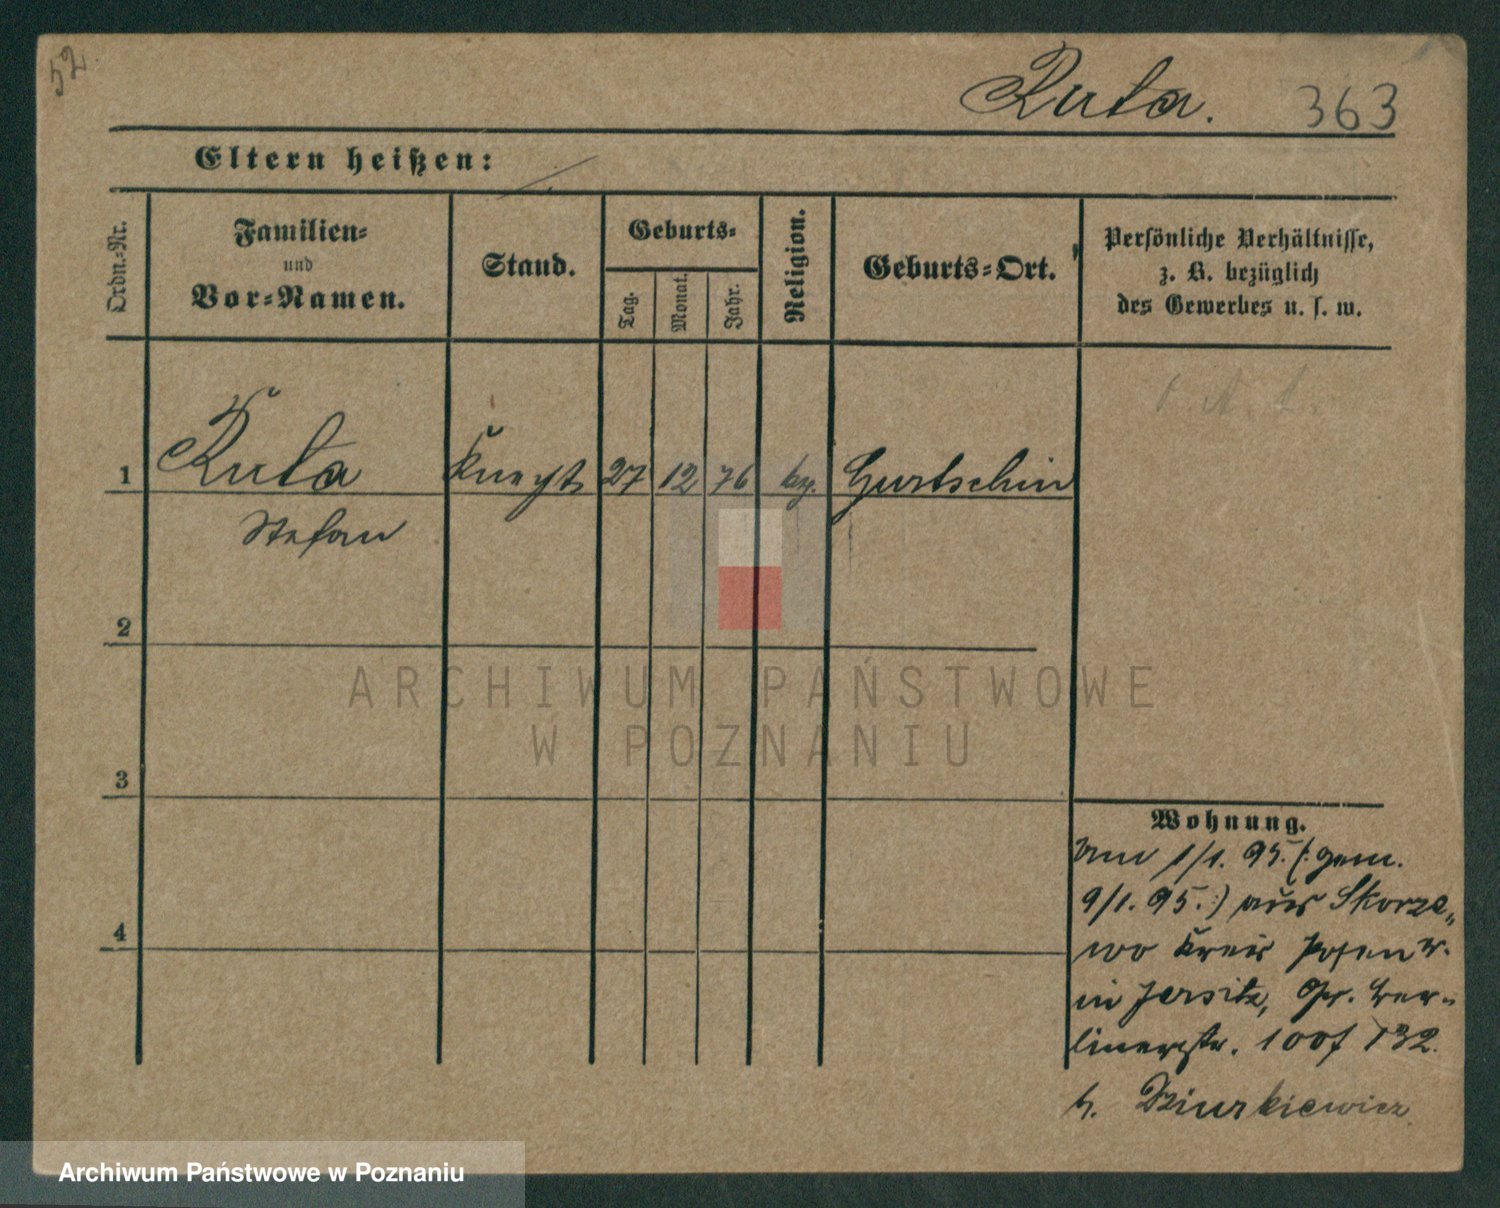 52.
Ruta. 363
Eltern heißen:
Ordn.-Nr.
Familien-
und
Vor-Namen.
Stand.
Geburts-
Tag.
Monat.
Jahr.
Religion.
Geburts-Ort.
Persönliche Verhältnisse,
z. B. bezüglich
des Gewerbes u. s. w.
1 Ruta Knecht 27 12 76 Gurtschin
Stefan
2
3
4
ARCHIWUM PAŃSTWOWE
W POZNANIU
Wohnung.
Am 1/1. 95. (: gem.
9/1. 95. :) aus Skorze-
wo Kreis Posen W.
in Jersitz, Gr. Ber-
linerstr. 132.
b. Dziurkiewicz
Archiwum Państwowe w Poznaniu